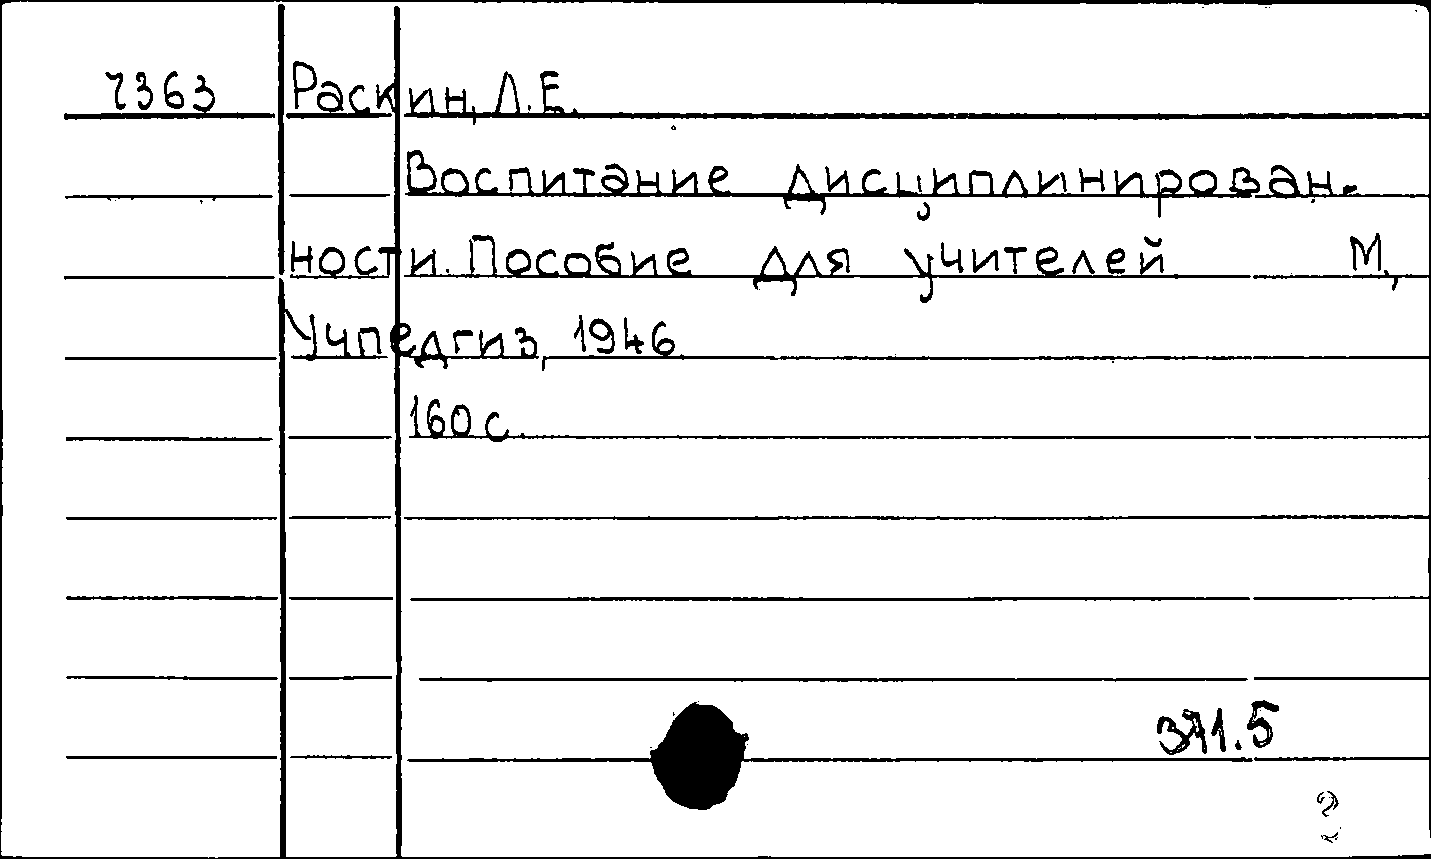 7363 Раскин, Л.Е.
Воспитание дисциплинирован-
ности. Пособие для учителей. М.,
Учпедгиз, 1946.
160 с.
371.5
2